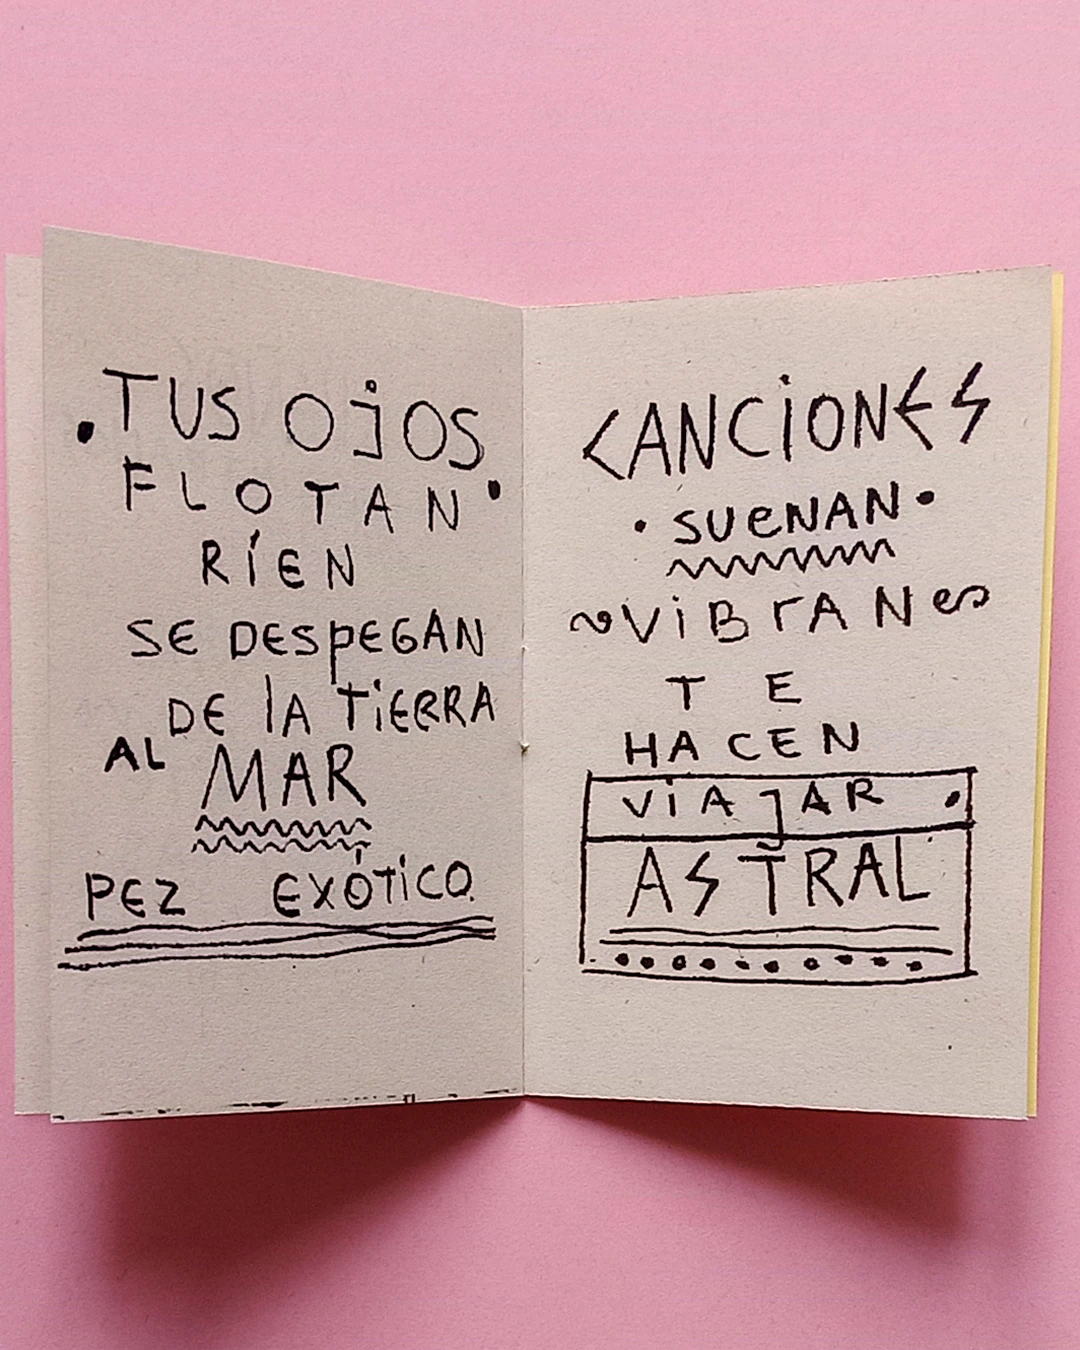 TUS OjOS
FLOTAN
RÍEN
SE DESpEGAN
DE lA TiERRA
AL MAR
PEZ EXÓTiCO
CANCiONES
SUeNAN
ViBrAN
TE
HACEN
ViAJAR
ASTRAL